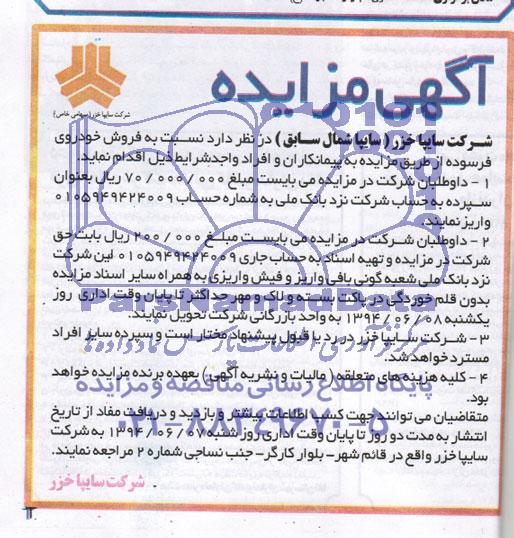 آگهی مزایده
شرکت سایپا خزر (سهامی خاص)
شرکت سایپا خزر (سایپا شمال سابق) در نظر دارد نسبت به فروش خودروی
فرسوده از طریق مزایده به پیمانکاران و افراد واجد شرایط ذیل اقدام نماید.
۱ - داوطلبان شرکت در مزایده می بایست مبلغ ۷۰/۰۰۰/۰۰۰ ریال بعنوان
سپرده به حساب شرکت نزد بانک ملی به شماره حساب ۰۱۰۵۹۴۹۴۲۴۰۰۹
واریز نمایند.
۲ - داوطلبان شرکت در مزایده می بایست مبلغ ۲۰۰/۰۰۰ ریال بابت حق
شرکت در مزایده و تهیه اسناد به حساب جاری ۰۱۰۵۹۴۹۴۲۴۰۰۹ این شرکت
نزد بانک ملی شعبه گونی بافی واریز و فیش واریزی به همراه سایر اسناد مزایده
بدون قلم خوردگی در پاکت بسته و لاک و مهر حداکثر تا پایان وقت اداری روز
یکشنبه ۱۳۹۴/۰۶/۰۸ به واحد بازرگانی شرکت تحویل نمایند.
۳ - شرکت سایپا خزر در رد یا قبول پیشنهاد مختار است و سپرده سایر افراد
مسترد خواهد شد.
۴ - کلیه هزینه های متعلقه (مالیات و نشریه آگهی) بعهده برنده مزایده خواهد
بود.
متقاضیان می توانند جهت کسب اطلاعات بیشتر و بازدید و دریافت مفاد از تاریخ
انتشار به مدت دو روز تا پایان وقت اداری روز شنبه ۱۳۹۴/۰۶/۰۷ به شرکت
سایپا خزر واقع در قائم شهر- بلوار کارگر- جنب نساجی شماره ۲ مراجعه نمایند.
شرکت سایپا خزر
پایگاه اطلاع رسانی مناقصه و مزایده
۰۲۱-۸۸۳۴۹۶۷۰-۵